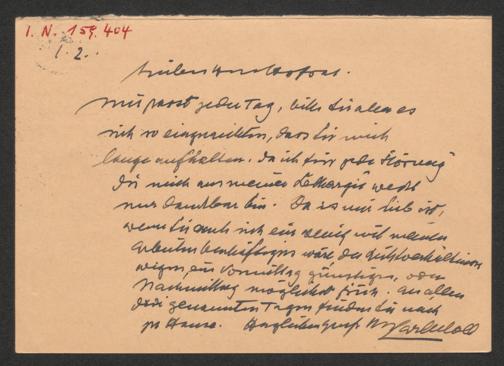 I. N. 159.404
1. 2.
Lieber Herr Hofrat.
Mir passt jeder Tag, bitte Sie aber es
sich so einzurichten, dass Sie mich
lange aufhalten, da ich für jede Störung
die mich aus meiner Lethargie weckt
nur dankbar bin. Da es mir lieb ist,
wenn Sie auch sich ein wenig mit meinen
Arbeiten beschäftigen wäre der Lichtverhältnisse
wegen ein Vormittag günstiger, oder
Nachmittag möglichst früh. An allen
drei genannten Tagen finden Sie mich
zu Hause. Herzlichen Gruß